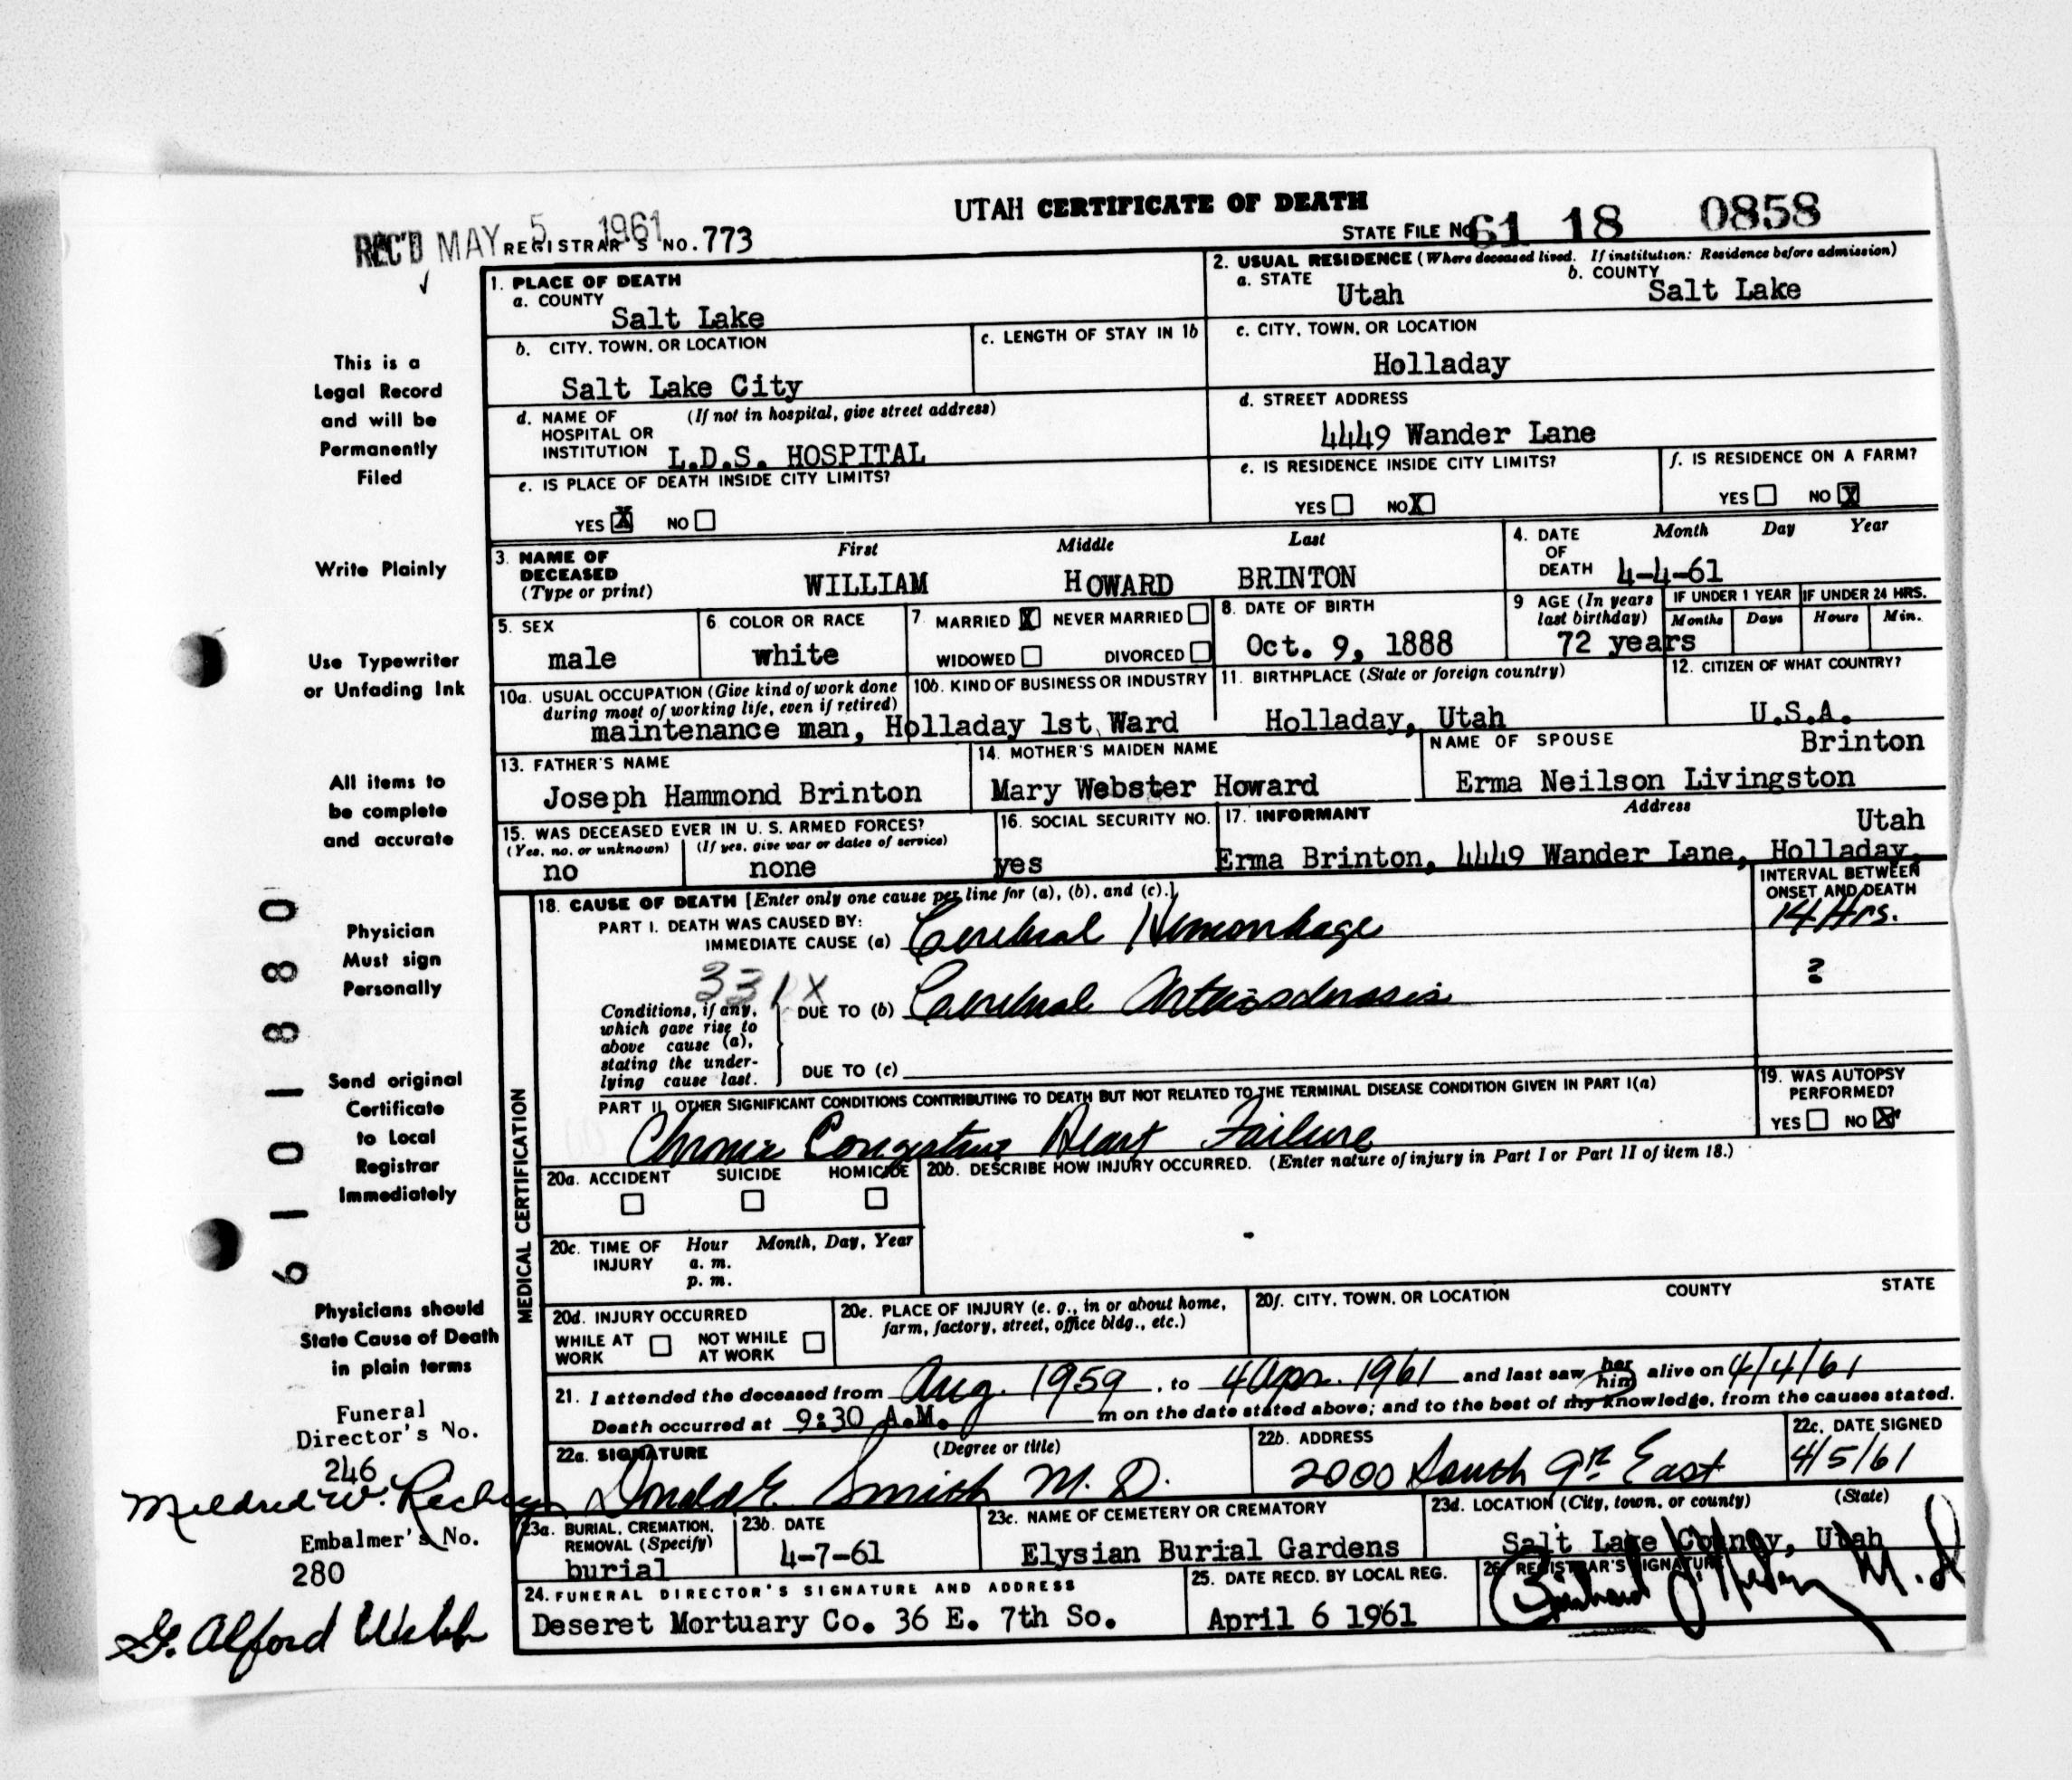 UTAH CERTIFICATE OF DEATH
REC'D MAY 5 1961 REGISTRAR'S NO. 773
STATE FILE NO. 61 18 0858
1. PLACE OF DEATH
a. COUNTY
Salt Lake
b. CITY, TOWN, OR LOCATION
Salt Lake City
c. LENGTH OF STAY IN 1b
d. NAME OF HOSPITAL OR INSTITUTION (If not in hospital, give street address)
L.D.S. HOSPITAL
e. IS PLACE OF DEATH INSIDE CITY LIMITS?
YES X NO
2. USUAL RESIDENCE (Where deceased lived. If institution: Residence before admission)
a. STATE Utah b. COUNTY Salt Lake
c. CITY, TOWN, OR LOCATION
Holladay
d. STREET ADDRESS
4449 Wander Lane
e. IS RESIDENCE INSIDE CITY LIMITS?
YES NO X
f. IS RESIDENCE ON A FARM?
YES NO X
3. NAME OF DECEASED (Type or print)
First Middle Last
WILLIAM HOWARD BRINTON
4. DATE OF DEATH Month Day Year
4-4-61
5. SEX
male
6. COLOR OR RACE
white
7. MARRIED X NEVER MARRIED
WIDOWED DIVORCED
8. DATE OF BIRTH
Oct. 9, 1888
9 AGE (In years last birthday)
72 years
IF UNDER 1 YEAR IF UNDER 24 HRS.
Months Days Hours Min.
10a. USUAL OCCUPATION (Give kind of work done during most of working life, even if retired)
10b. KIND OF BUSINESS OR INDUSTRY
maintenance man, Holladay 1st Ward
11. BIRTHPLACE (State or foreign country)
Holladay, Utah
12. CITIZEN OF WHAT COUNTRY?
U.S.A.
13. FATHER'S NAME
Joseph Hammond Brinton
14. MOTHER'S MAIDEN NAME
Mary Webster Howard
NAME OF SPOUSE Brinton
Erma Neilson Livingston
15. WAS DECEASED EVER IN U. S. ARMED FORCES?
(Yes, no, or unknown) (If yes, give war or dates of service)
no none
16. SOCIAL SECURITY NO.
yes
17. INFORMANT Address
Utah
Erma Brinton, 4449 Wander Lane, Holladay,
18. CAUSE OF DEATH [Enter only one cause per line for (a), (b), and (c).]
INTERVAL BETWEEN ONSET AND DEATH
PART I. DEATH WAS CAUSED BY:
IMMEDIATE CAUSE (a) Cerebral Hemorrhage 14 Hrs.
331X
Conditions, if any, which gave rise to above cause (a), stating the underlying cause last.
DUE TO (b) Cerebral Arteriosclerosis ?
DUE TO (c)
PART II. OTHER SIGNIFICANT CONDITIONS CONTRIBUTING TO DEATH BUT NOT RELATED TO THE TERMINAL DISEASE CONDITION GIVEN IN PART I(a)
Chronic Congestive Heart Failure
19. WAS AUTOPSY PERFORMED?
YES NO X
MEDICAL CERTIFICATION
20a. ACCIDENT SUICIDE HOMICIDE
20b. DESCRIBE HOW INJURY OCCURRED. (Enter nature of injury in Part I or Part II of item 18.)
20c. TIME OF INJURY Hour Month, Day, Year
a. m.
p. m.
20d. INJURY OCCURRED
WHILE AT WORK NOT WHILE AT WORK
20e. PLACE OF INJURY (e. g., in or about home, farm, factory, street, office bldg., etc.)
20f. CITY, TOWN, OR LOCATION COUNTY STATE
21. I attended the deceased from Aug. 1959, to 4 Apr. 1961 and last saw her him alive on 4/4/61
Death occurred at 9:30 A.M. m on the date stated above; and to the best of my knowledge, from the causes stated.
22a. SIGNATURE (Degree or title)
Donald E. Smith M. D.
22b. ADDRESS
2000 South 9th East
22c. DATE SIGNED
4/5/61
23a. BURIAL, CREMATION, REMOVAL (Specify)
burial
23b. DATE
4-7-61
23c. NAME OF CEMETERY OR CREMATORY
Elysian Burial Gardens
23d. LOCATION (City, town, or county) (State)
Salt Lake County, Utah
24. FUNERAL DIRECTOR'S SIGNATURE AND ADDRESS
Deseret Mortuary Co. 36 E. 7th So.
25. DATE RECD. BY LOCAL REG.
April 6 1961
26. REGISTRAR'S SIGNATURE
M.D
This is a
Legal Record
and will be
Permanently
Filed
Write Plainly
Use Typewriter
or Unfading Ink
All items to
be complete
and accurate
Physician
Must sign
Personally
Send original
Certificate
to Local
Registrar
Immediately
Physicians should
State Cause of Death
in plain terms
Funeral
Director's No.
246
Mildred W.
Embalmer's No.
280
G. Alford Webb
6101880